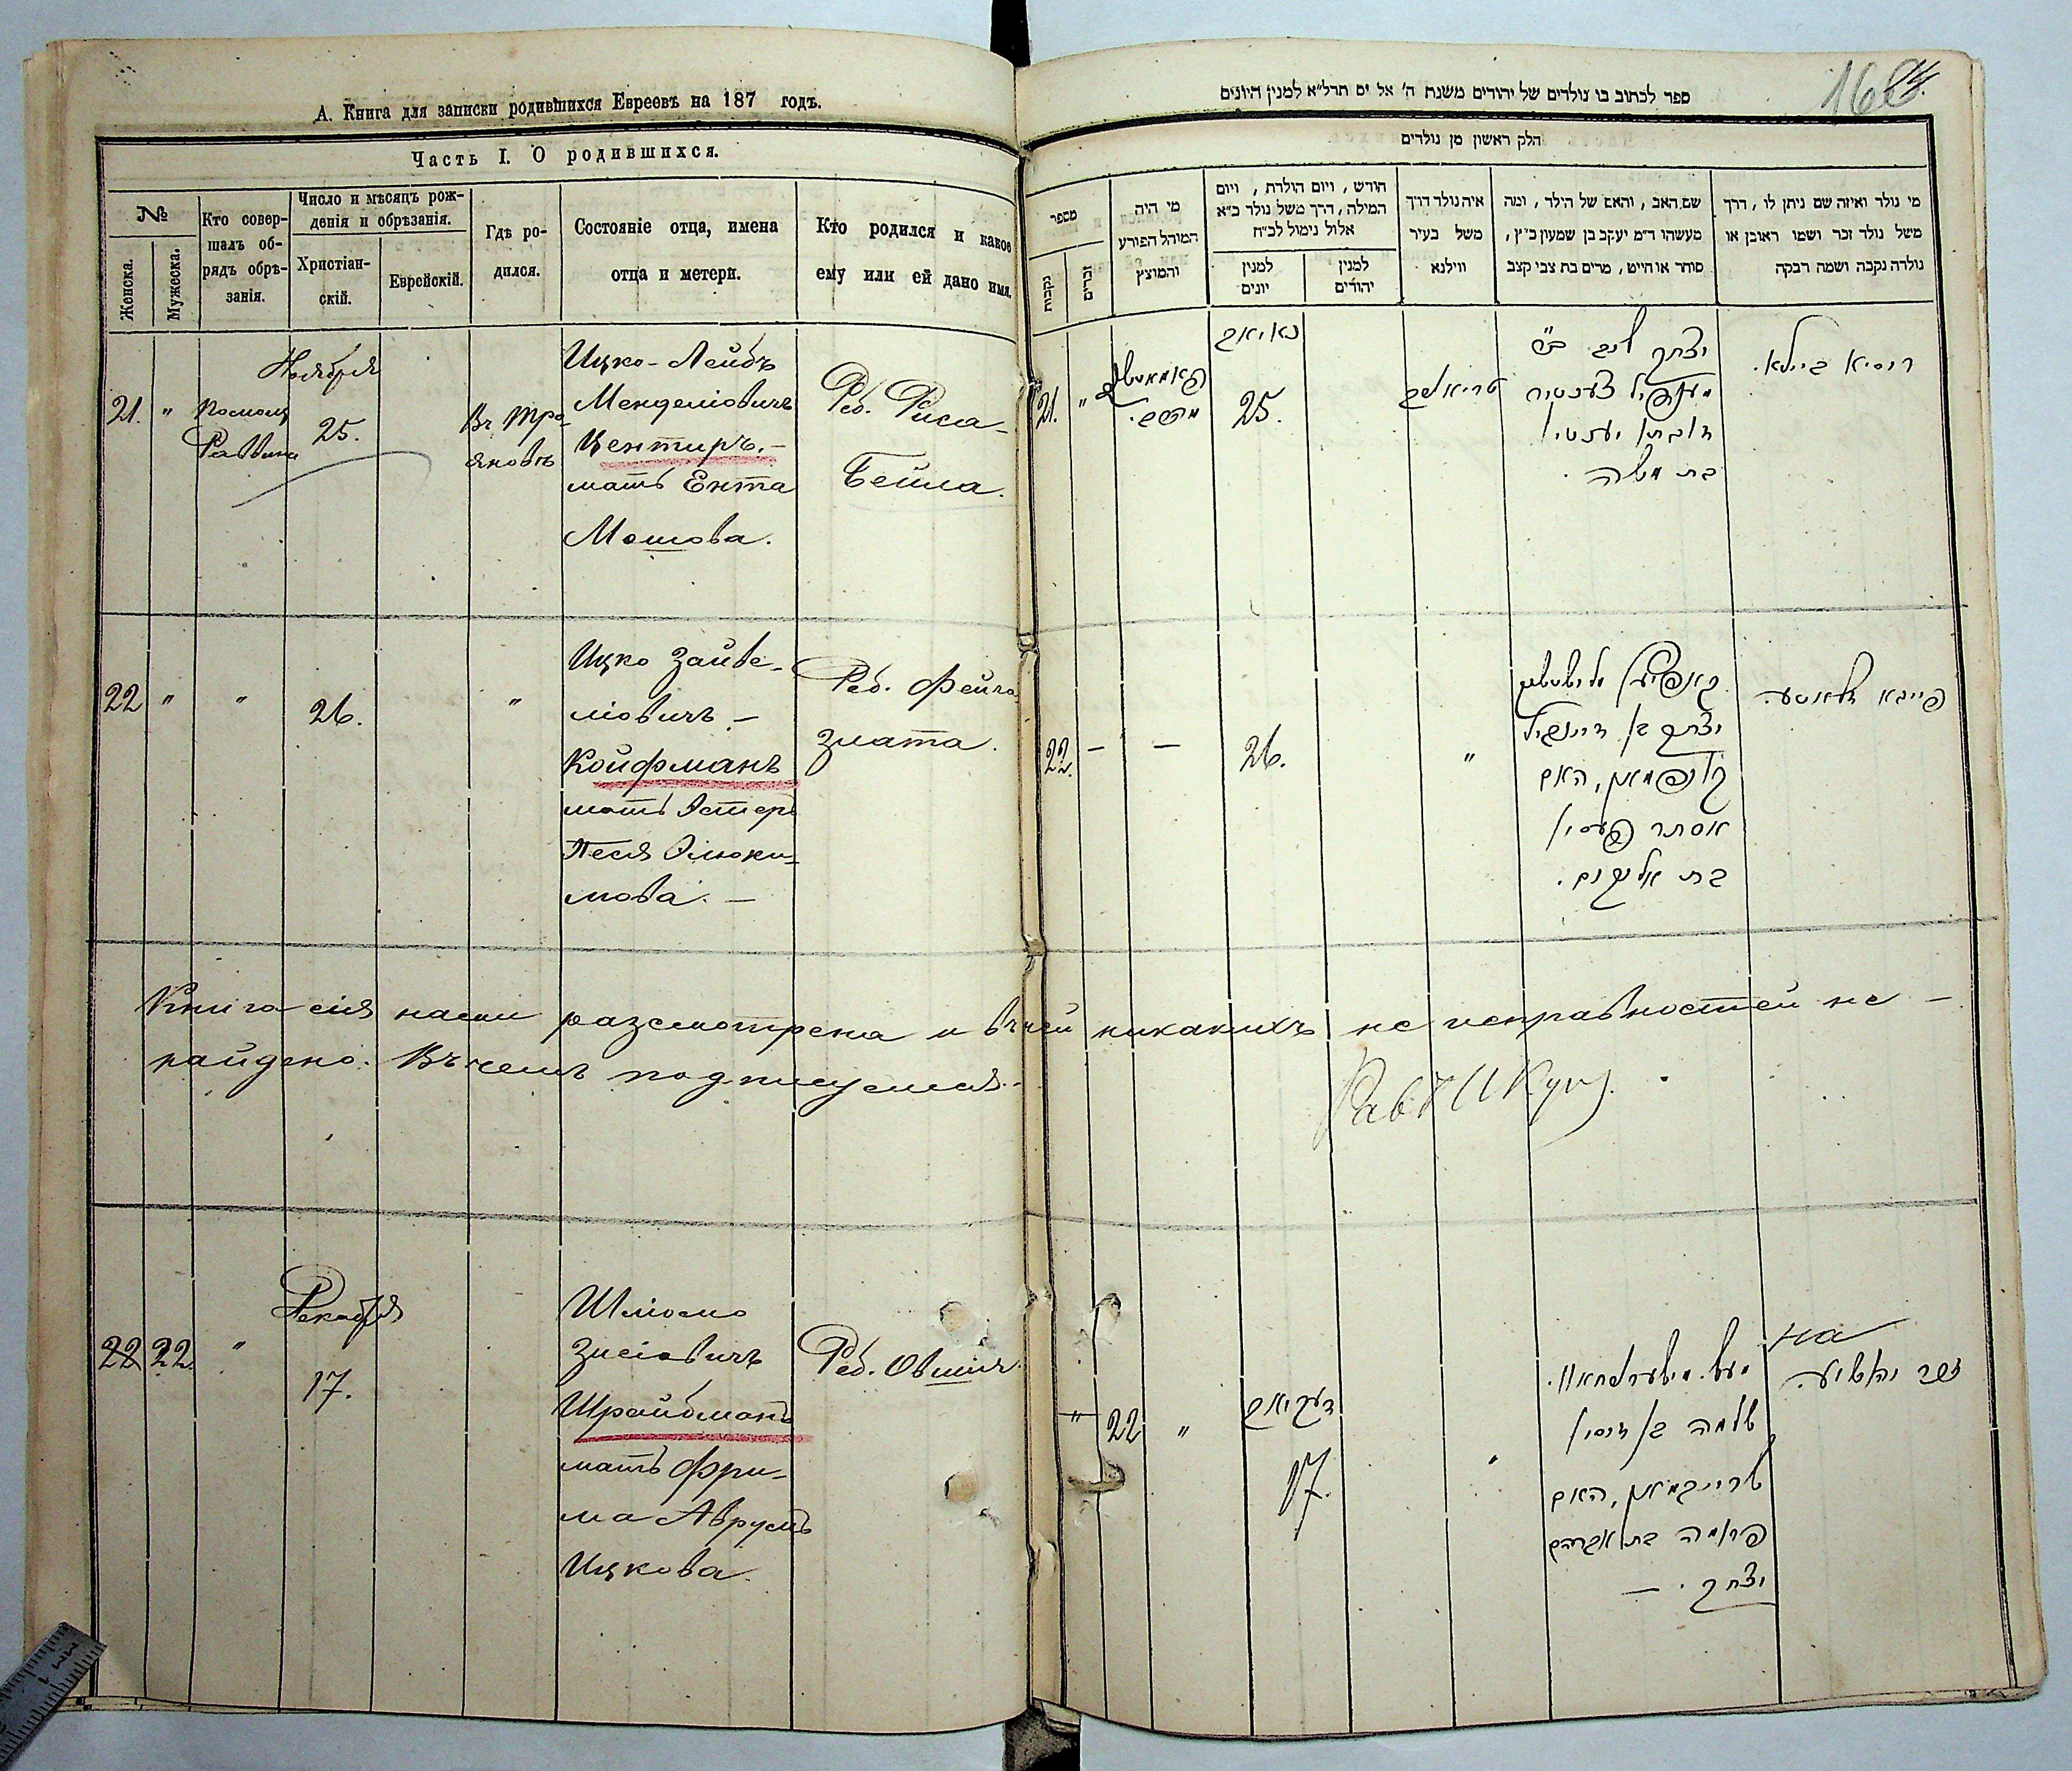 А. Книга для записки родившихся Евреевъ на 187 годъ.
Часть I. О родившихся.
№
Женска.
Мужеска.
Кто совер-
шалъ об-
рядъ обрѣ-
занія.
Число и мѣсяцъ рож-
денія и обрѣзанія.
Христіан-
скій.
Еврейскій.
Гдѣ ро-
дился.
Состояніе отца, имена
отца и метери.
Кто родился и какое
ему или ей дано имя.
21. "
Помощ
Раввина
Ноября
25.
Въ Тро-
яновѣ
Ицко-Лейбъ
Менделіовичъ
Центиръ.-
мать Ента
Мошова.
Реб. Риса-
Бейла.
22 " "
26.
"
Ицко Зайве-
ліовичъ -
Койфманъ
мать Эстеръ
Песя Элюки-
мова. -
Реб. Фейга
Злата.
Книга сія нами разсмотрена и въ ней никакихъ не исправностей не -
найдено. Въ чемъ подписуемся.-
22 22. "
Декабря
17.
Шліомо
Зисіовичъ
Шрайбманъ
мать Фри-
ма Аврумъ
Ицкова.
Реб. Овшія
ספר לכתוב בו נולדים של יהודים משנת ה' אל ים תרל"א למנין היונים
חלק ראשון מן נולדים
מספר
נקבות
זכרים
מי היה
המוהל הפורע
והמוצץ
חודש , ויום הולדת , ויום
המילה, דרך משל נולד כ"א
אלול נימול לכ"ח
למנין
יונים
למנין
יהודים
איה נולד דרך
משל בעיר
ווילנא
שם האב , והאם של הילד , ומה
מעשהו ד"מ יעקב בן שמעון כ"ץ,
סוחר או חייט , מרים בת צבי קצב
מי נולד ואיזה שם ניתן לו , דרך
משל נולד זכר ושמו ראובן או
נולדה נקבה ושמה רבקה
21. "
נאיאב
25.
יצחק ליב
בת משה .
ריסיא ביילא.
22. - -
26.
"
יצחק בן זיינוויל
קויפמאן, האם
אסתר פעסי
בת אליקום .
פייגא זלאטע.
" 22 "
דעקיאב
17.
שלמה בן זוסי
שרייבמאן, האם
פרומה בת אברהם
יצחק . —
на
זכר יהושיע.